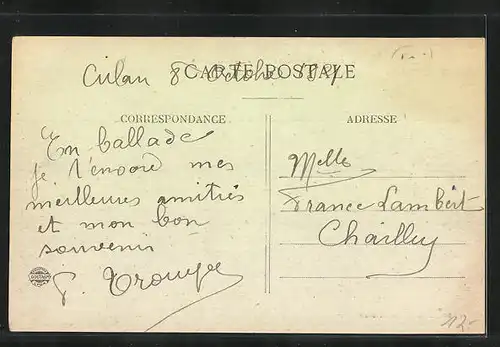 Culan 8 Octobre
CARTE POSTALE
CORRESPONDANCE
ADRESSE
En ballade
je t'envoie mes
meilleures amitiés
et mon bon
souvenir
Melle
France Lambert
Chailley
12-